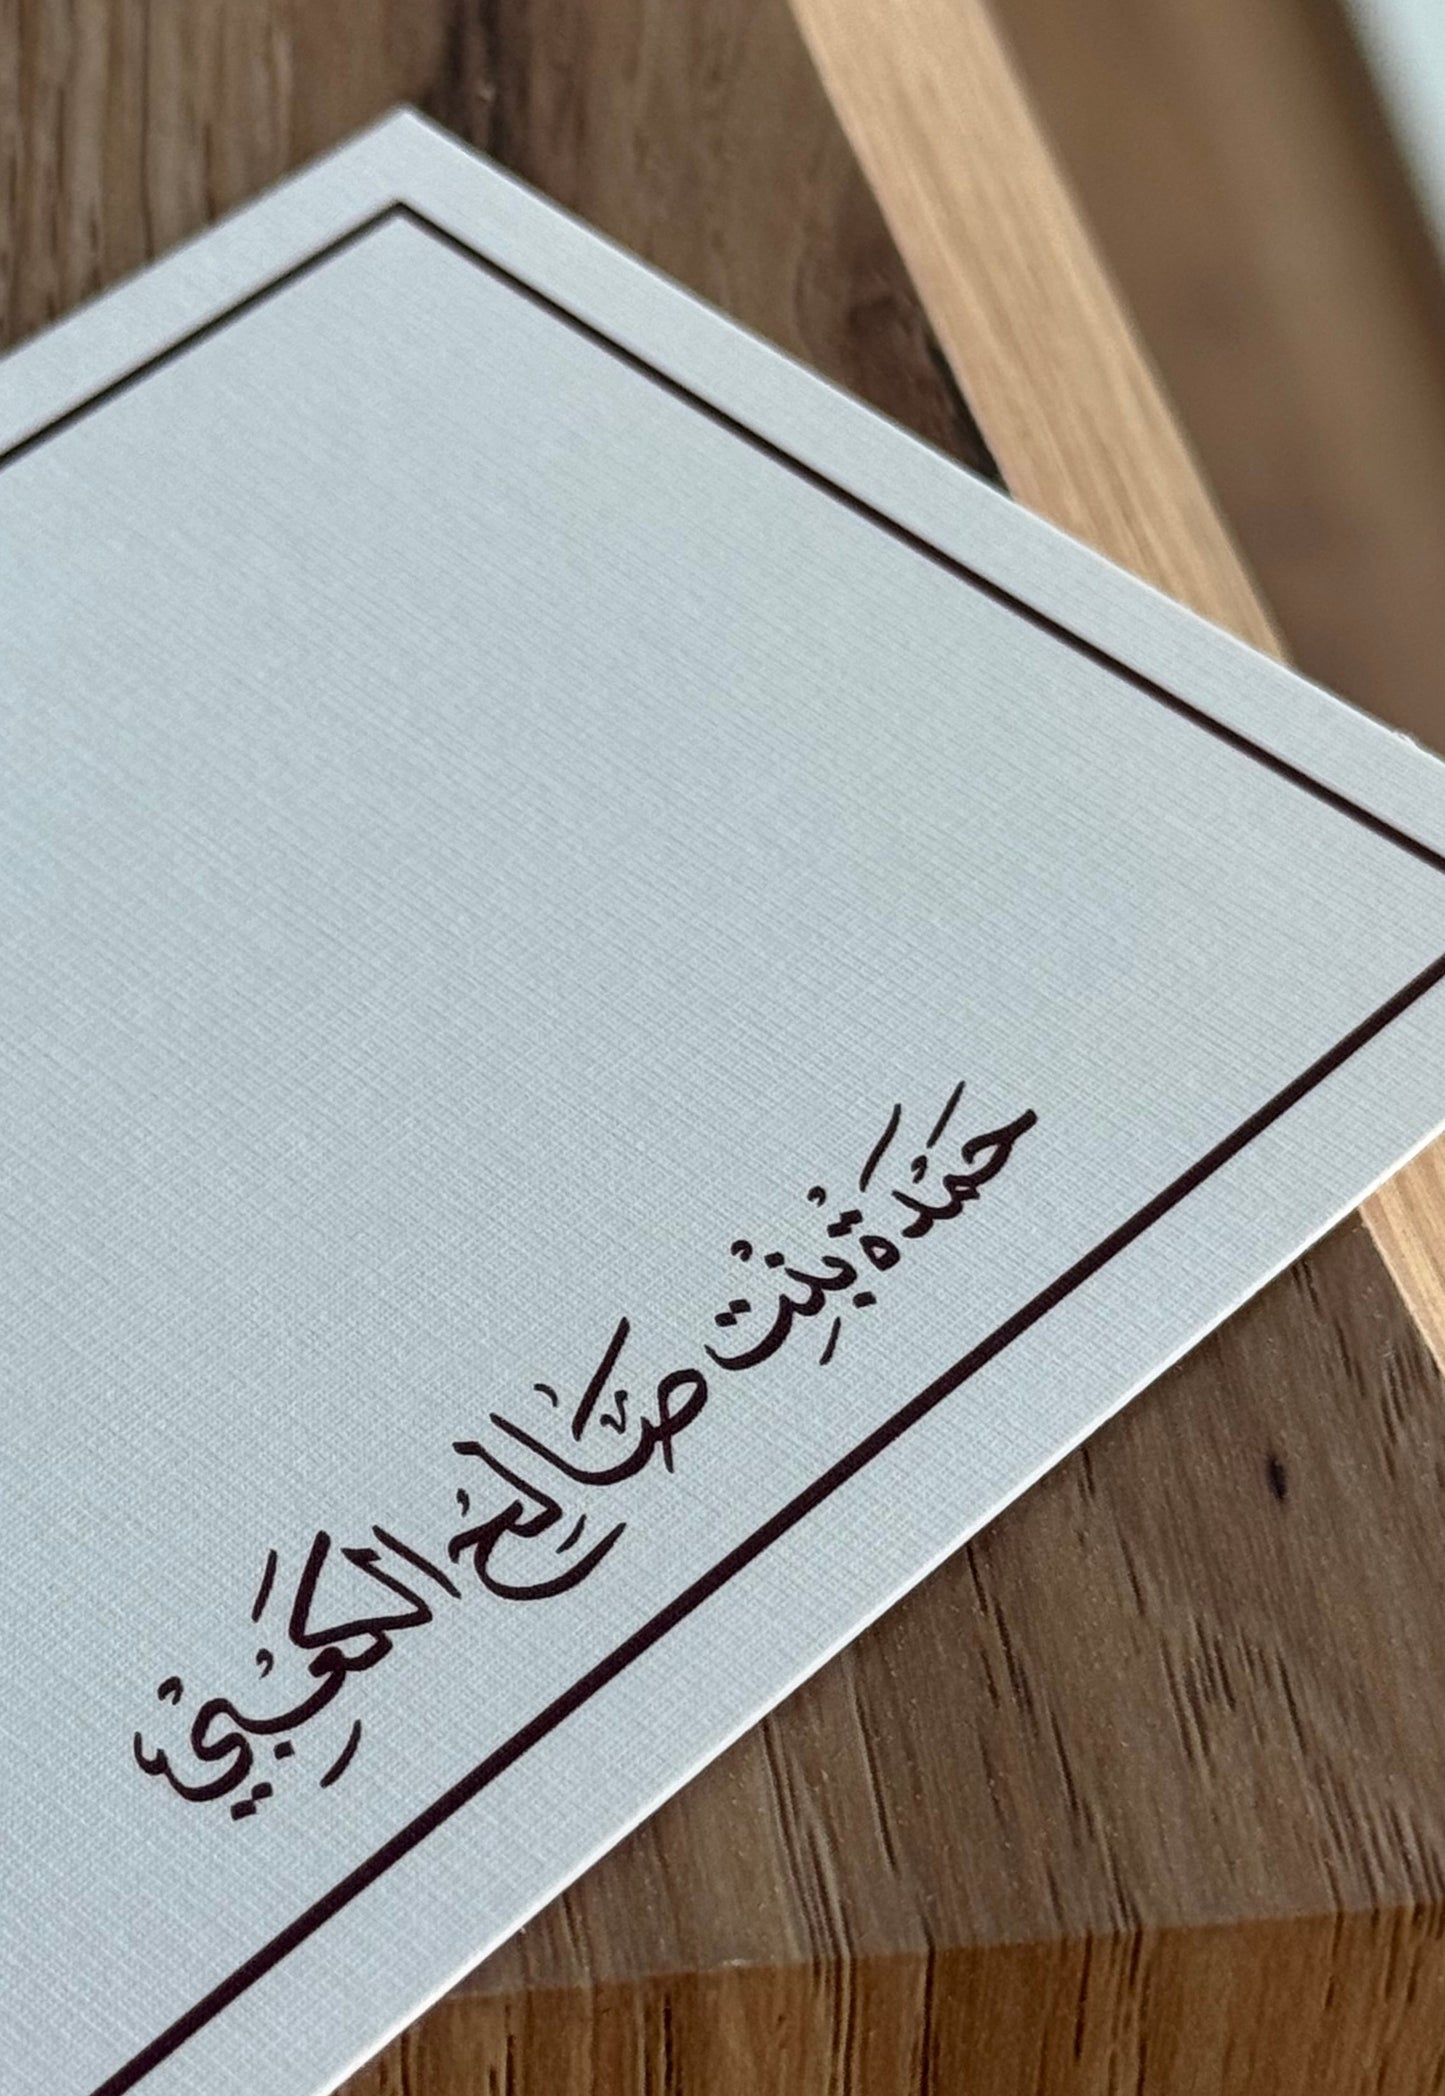 حمدة بنت صالح الكعبي